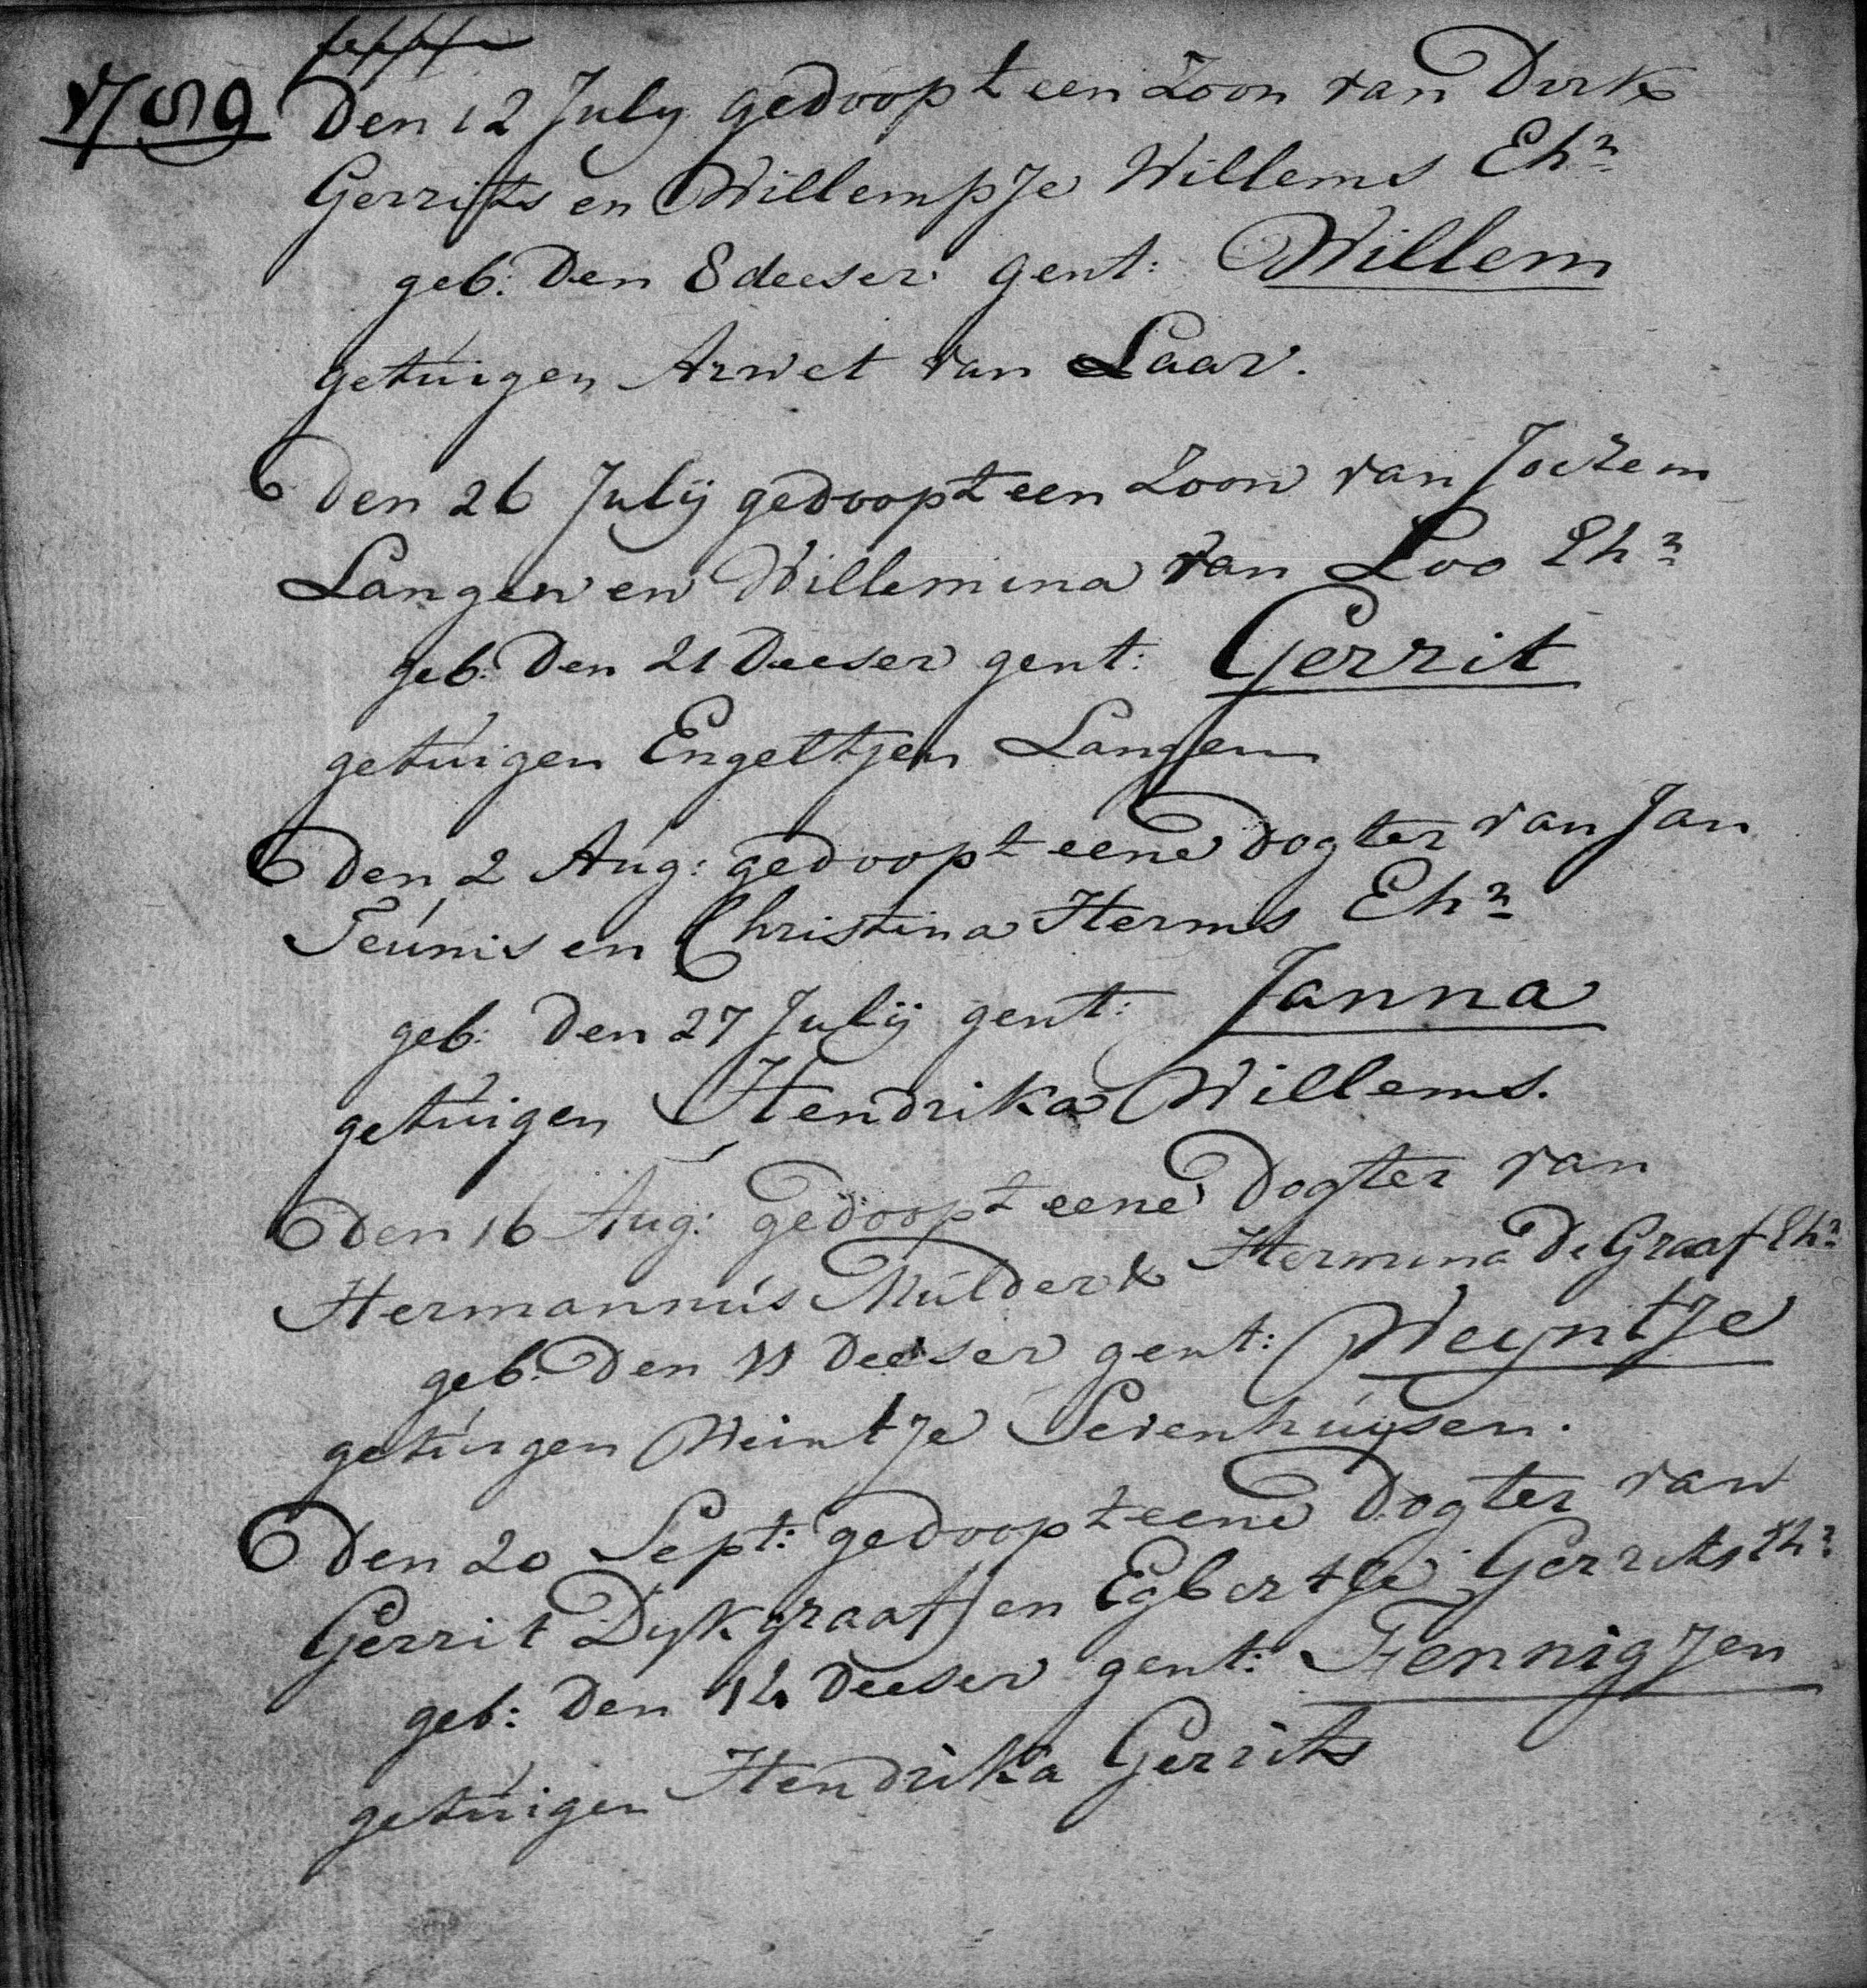 1789 Den 12 July gedoopt een Zoon van Dirk
Gerrits en Willempje Willems Ehn
geb: Den 8 deeser gent: Willem
getuigen Arnet van Laar.
Den 26 Julij gedoopt een Zoon van Jochem
Langen en Willemina van Loo Ehn
geb: Den 21 Deeser gent: Gerrit
getuigen Engeltjen Langen
Den 2 Aug: gedoopt eene Dogter van Jan
Teunis en Christina Herms Ehn
geb: Den 27 Julij gent: Janna
getuigen Hendrika Willems.
Den 16 Aug: gedoopt eene Dogter van
Hermannus Mulder & Hermina De Graaf Ehn
geb: Den 11 Deeser gent: Weyntje
getuigen Weintje Sevenhuijsen.
Den 20 Sept: gedoopt eene Dogter van
Gerrit Dykgraaf en Egbertje Gerrits Ehn
geb: Den 12 Deeser gent: Fennigjen
getuigen Hendrika Gerrits